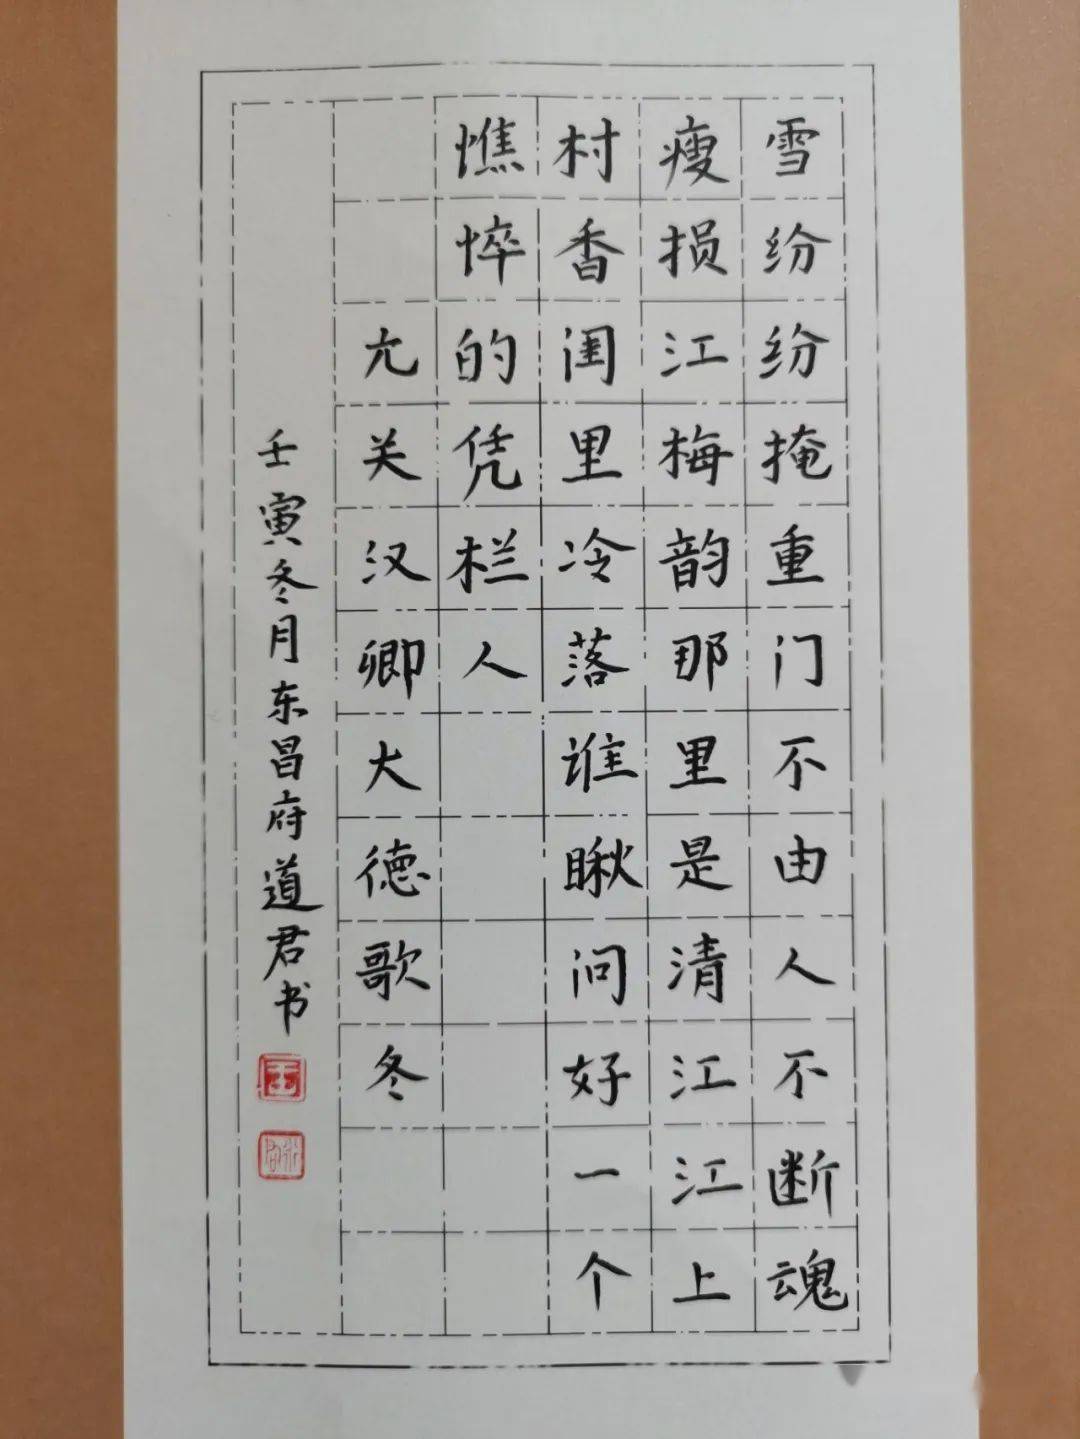 雪纷纷掩重门不由人不断魂
瘦损江梅韵那里是清江江上
村香闺里冷落谁瞅问好一个
憔悴的凭栏人
元关汉卿大德歌冬
壬寅冬月东昌府道君书